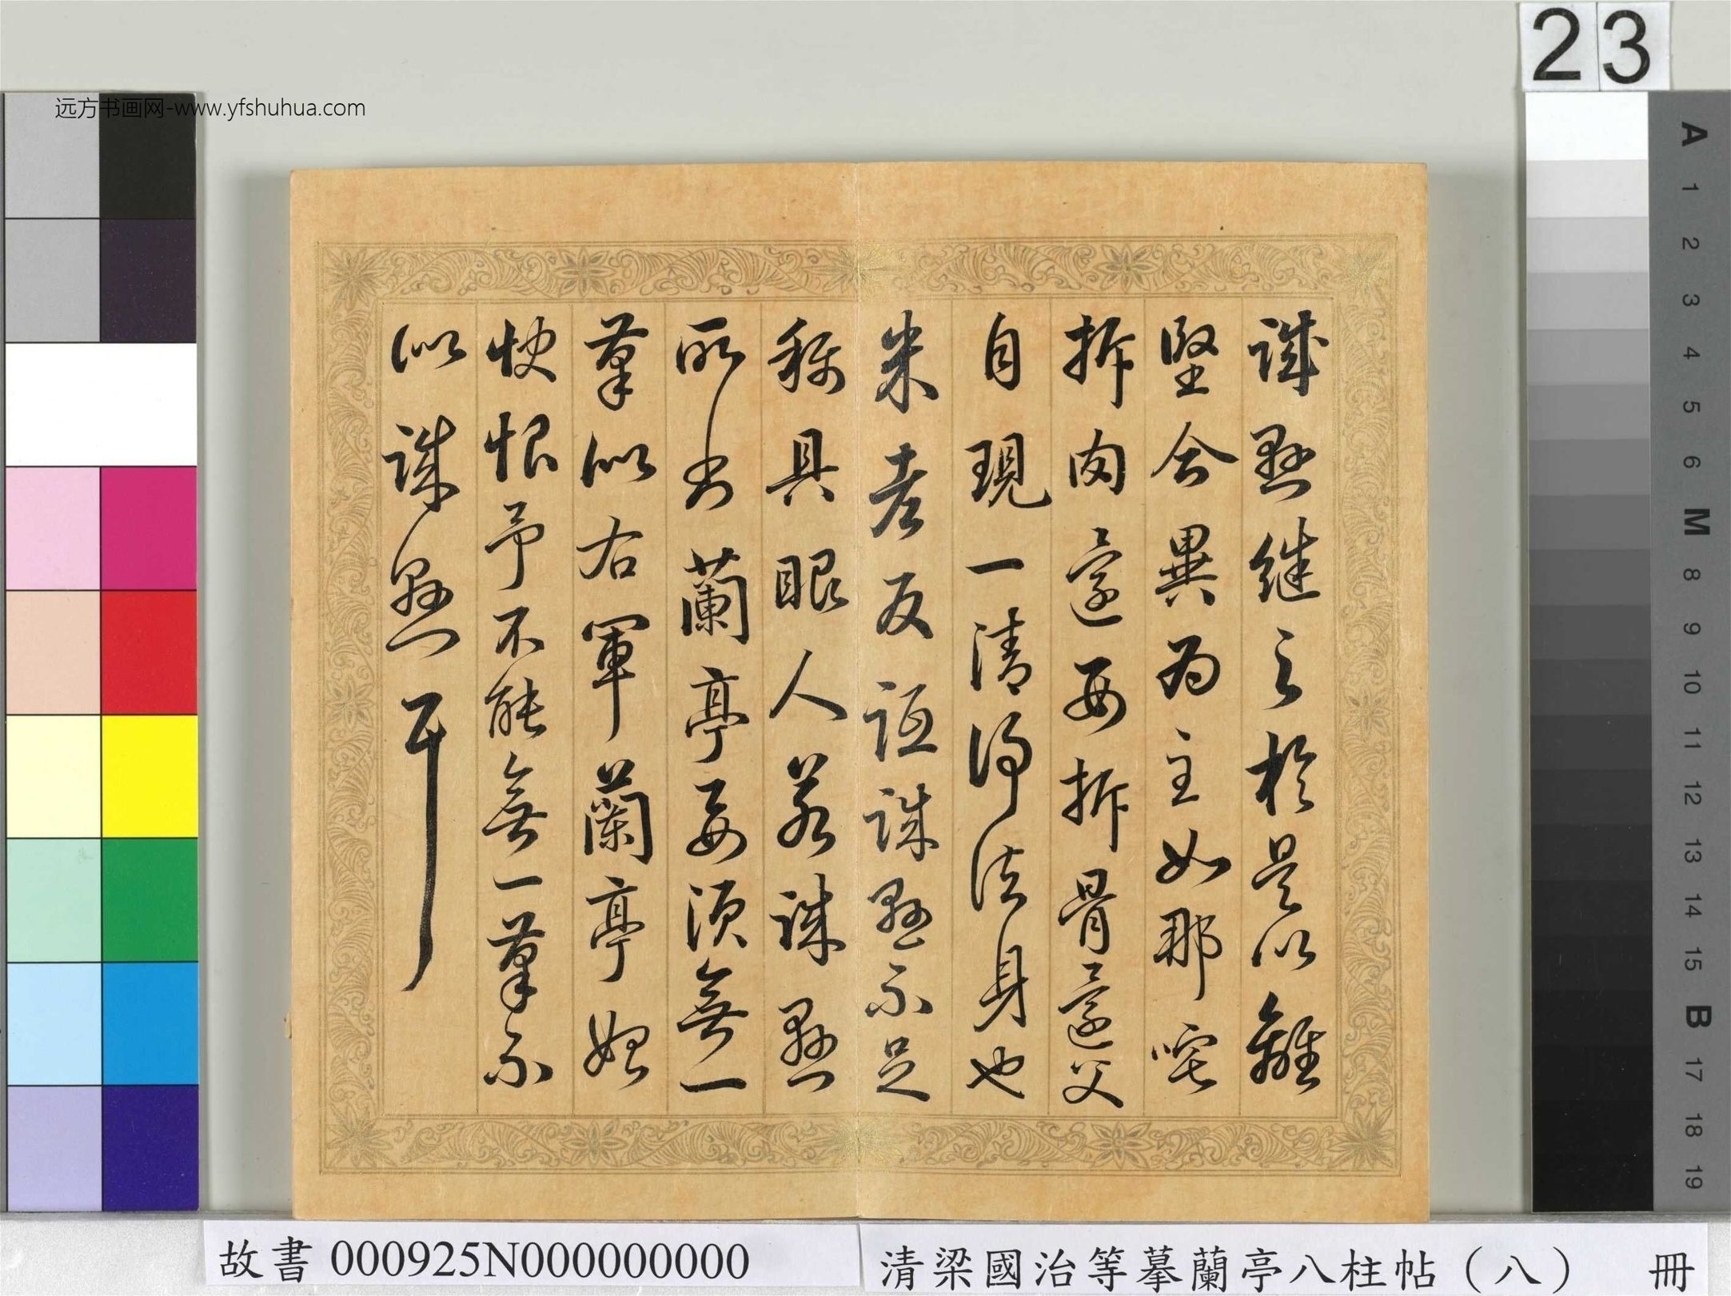 23
远方书画网-www.yfshuhua.com
誠懸継之於是以離
堅合異為主如那吒
拆肉還母拆骨還父
自現一清浄法身也
米老反詆誠懸不足
稱具眼人若誠懸
所書蘭亭要須無一
筆似右軍蘭亭始
快恨予不能無一筆不
似誠懸耳
A
1
2
3
4
5
6
M
8
9
10
11
12
13
14
15
B
17
18
19
故書 000925N000000000
清梁國治等摹蘭亭八柱帖（八） 冊